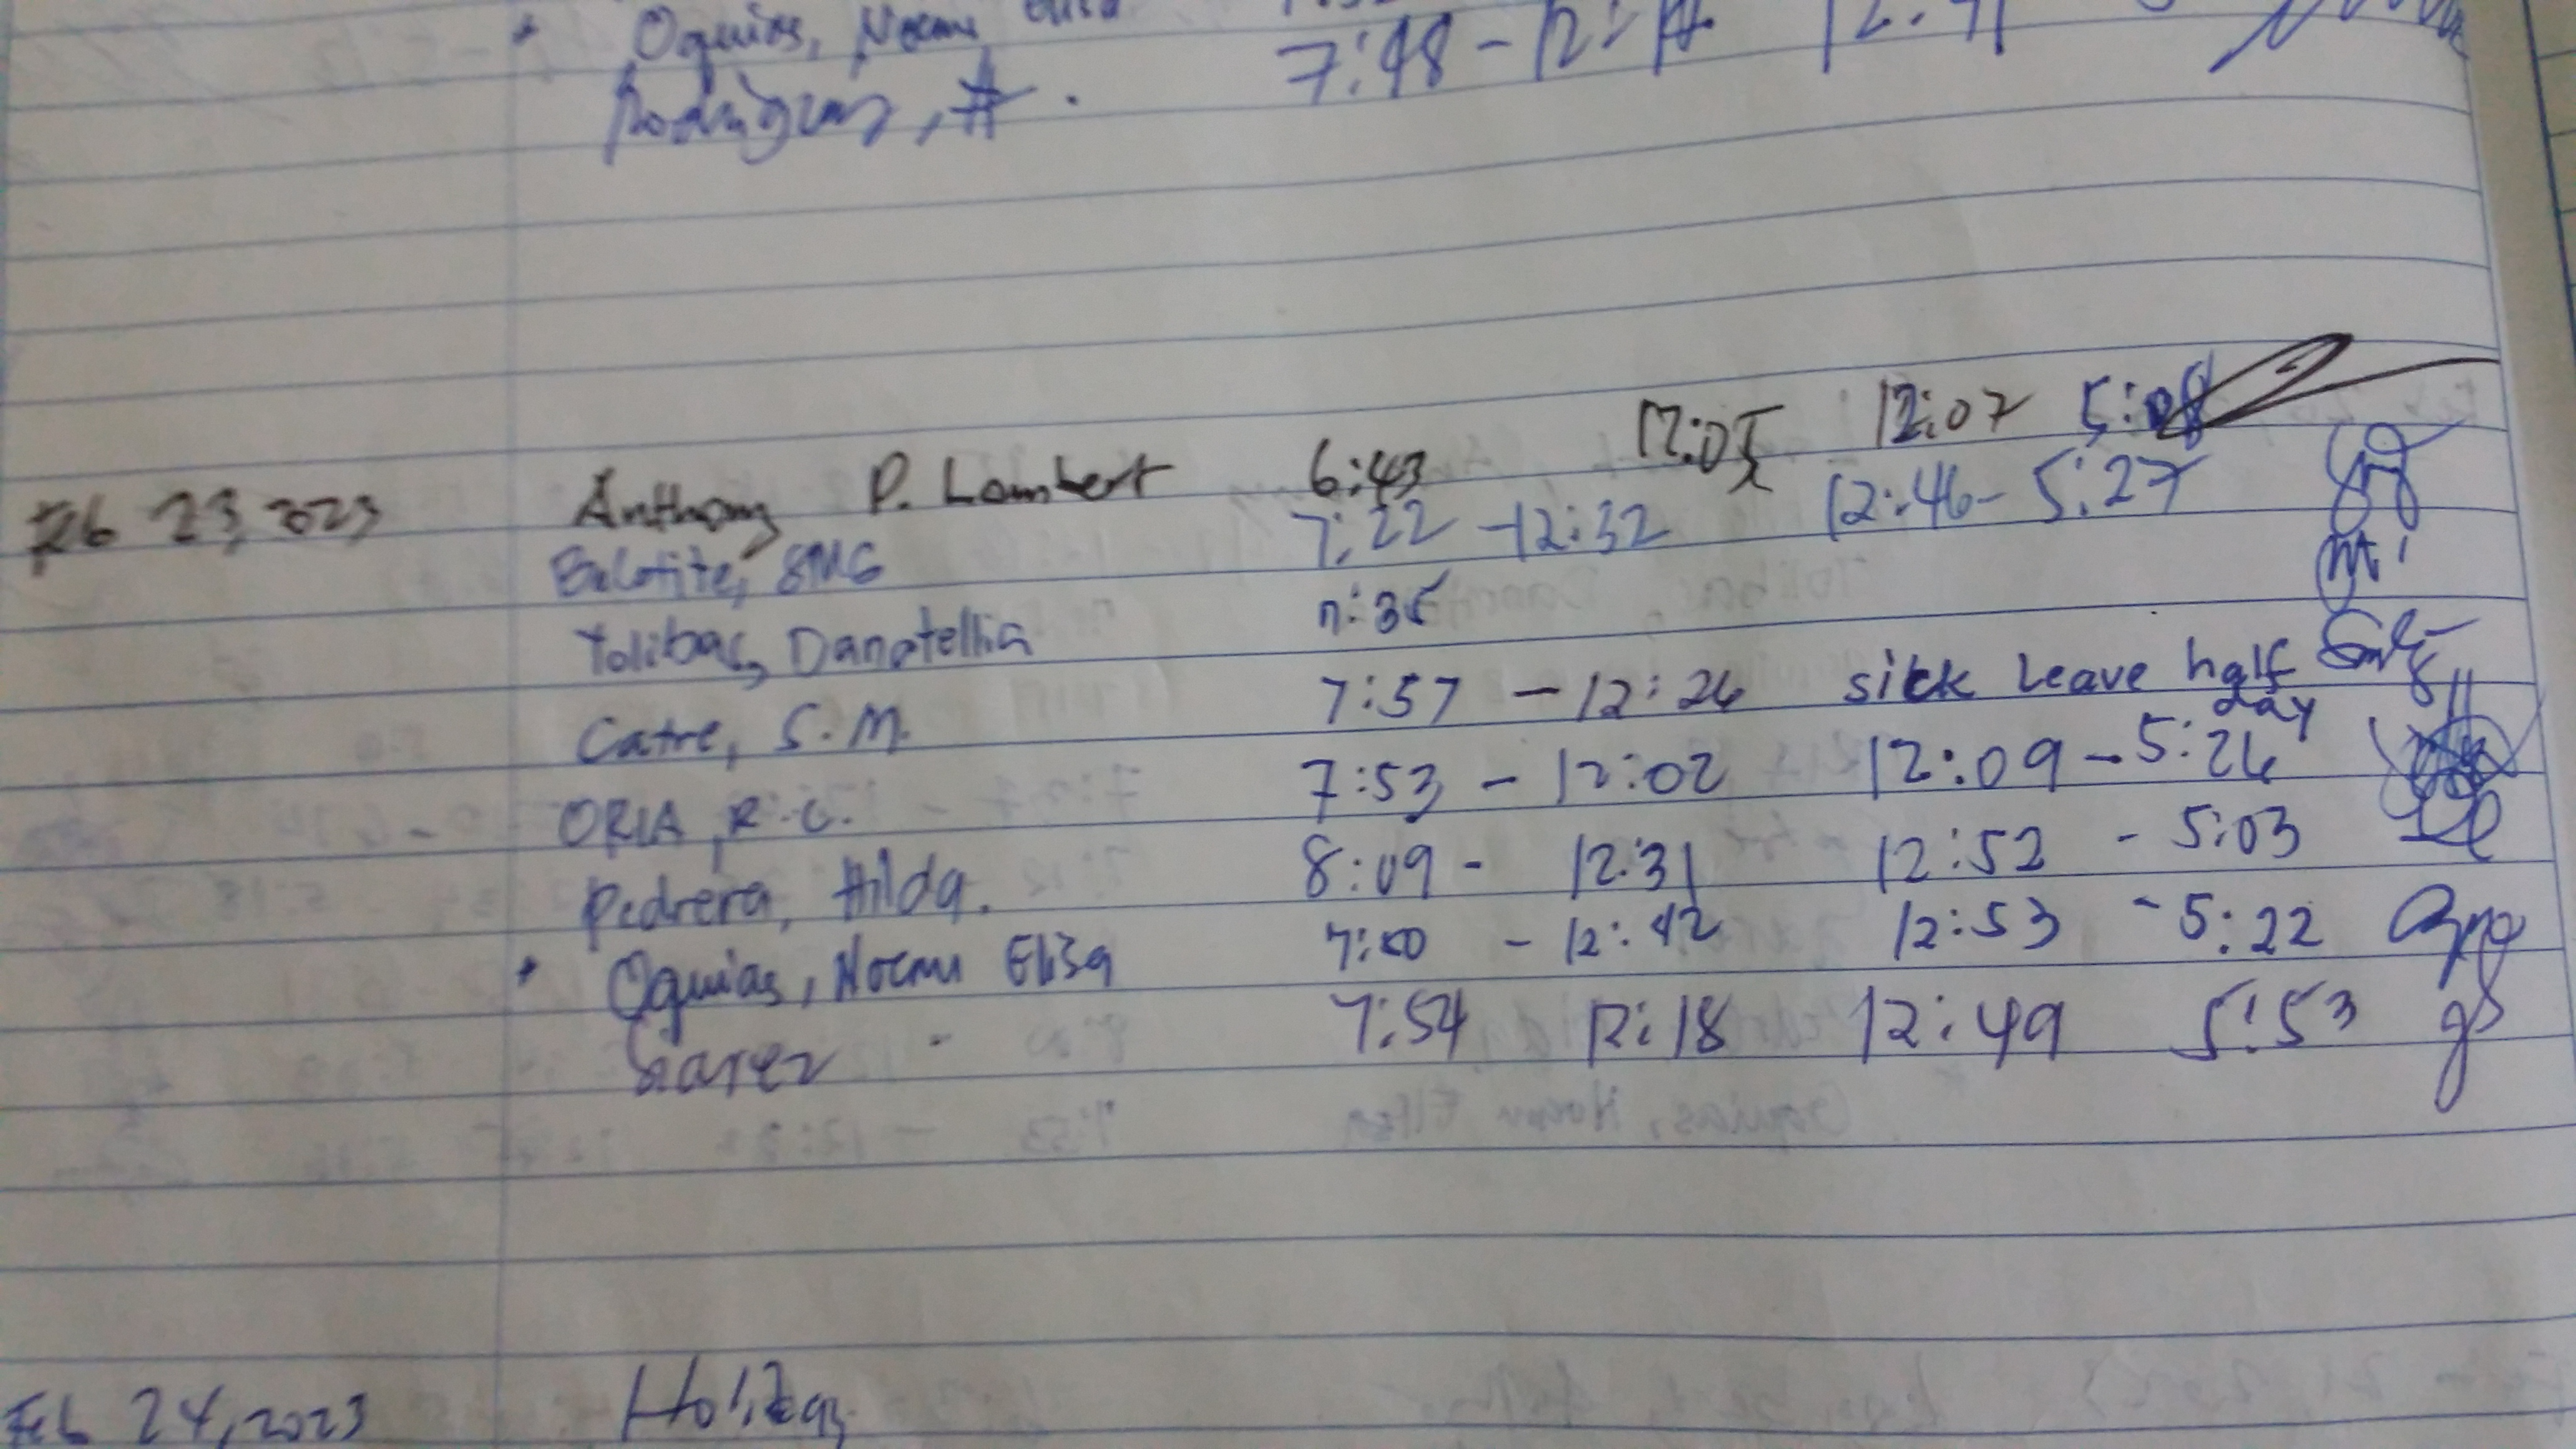 Oquias, Noemi Elisa
7:48 - 12:17 12:41
Feb 23, 2023 Anthony P. Lambert 6:43 12:05 12:07 5:08
SMG 7:22 - 12:32 12:46 - 5:27
Tolibas, Danatellia 7:35
Catre, S.M. 7:57 - 12:26 sick leave half day
ORIA, R.C. 7:53 - 12:02 12:09 - 5:26
Pedrera, Hilda. 8:09 - 12:31 12:52 - 5:03
Oquias, Noemi Elisa 7:50 - 12:42 12:53 - 5:22
7:54 12:18 12:49 5:53
Feb 24, 2023 Holiday